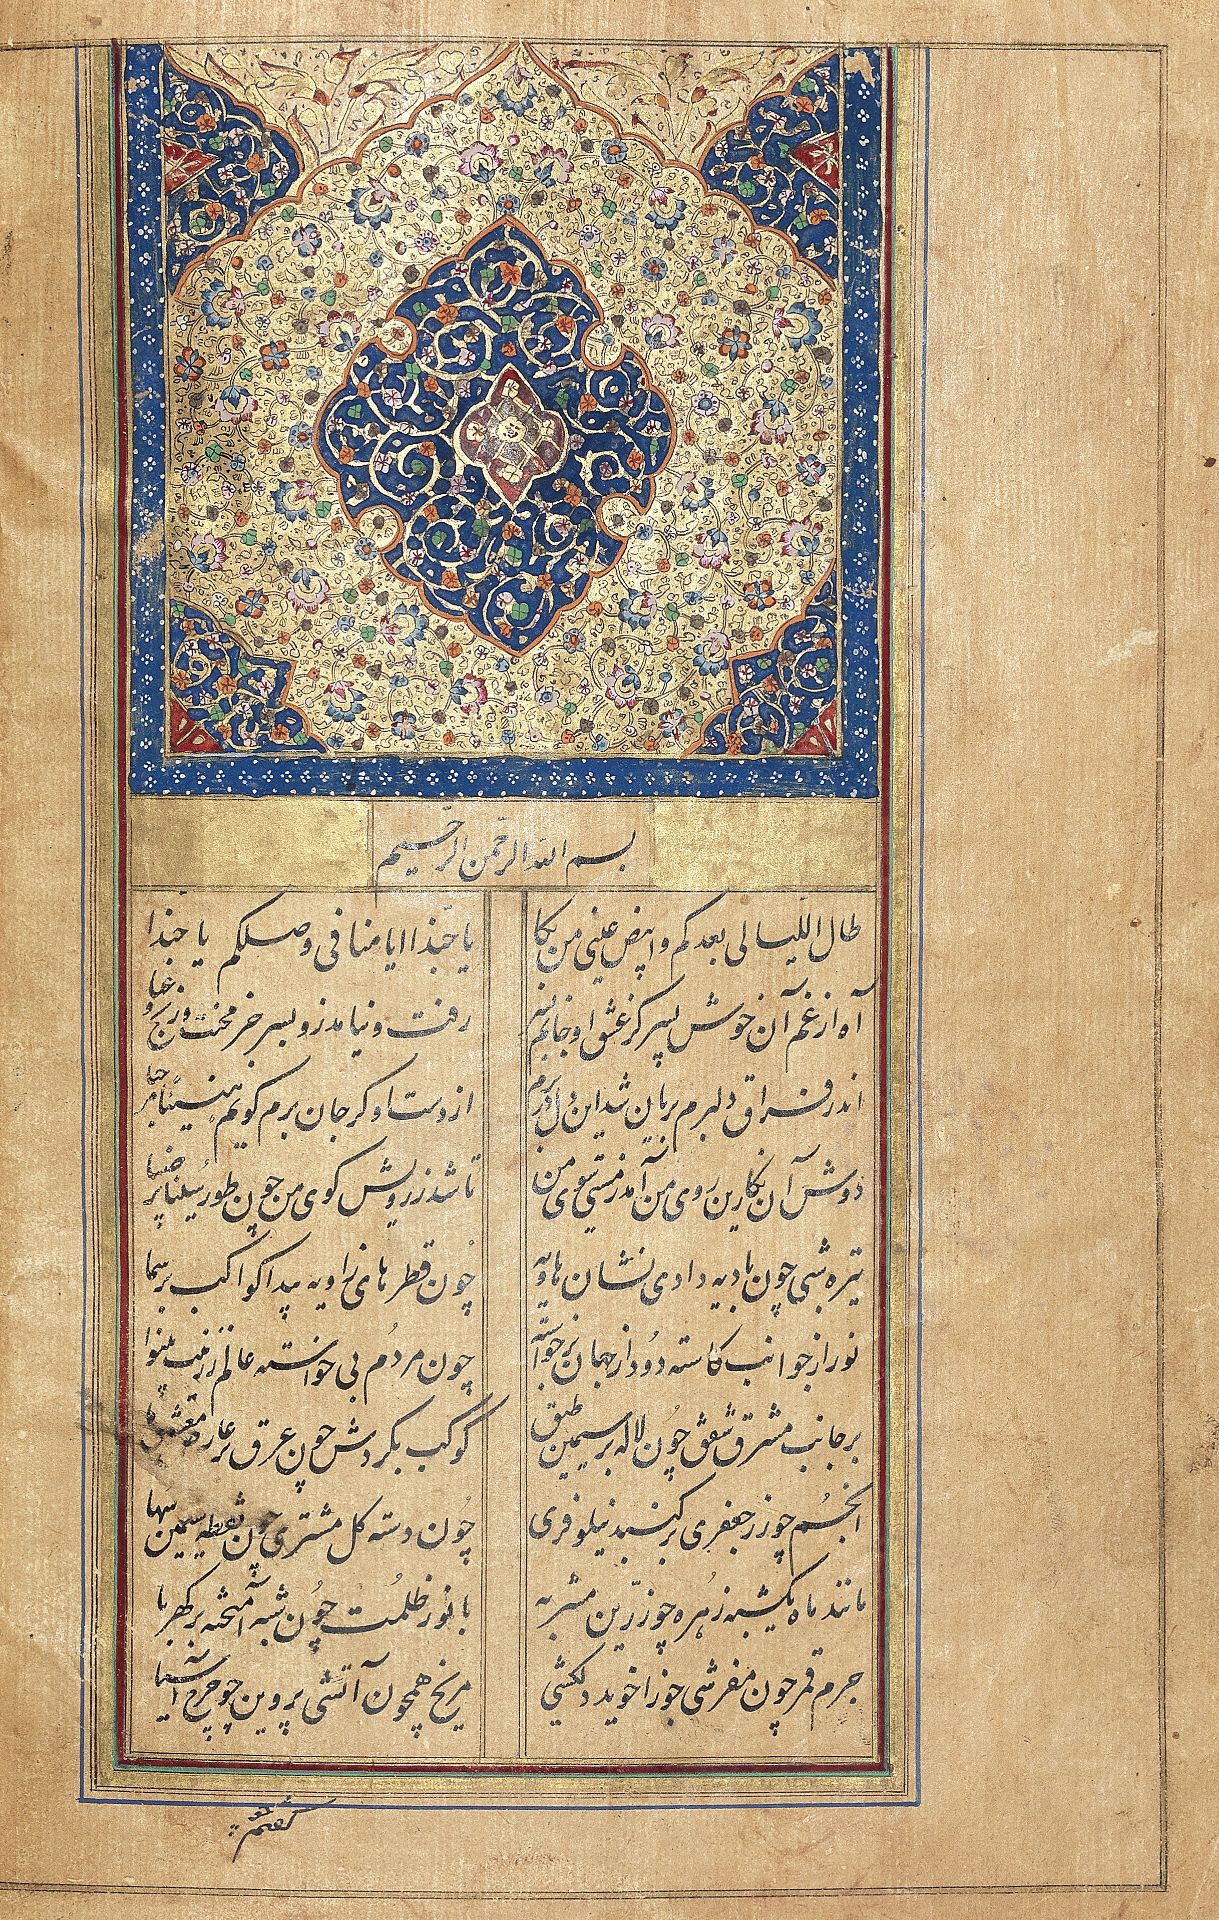 بسم الله الرحمن الرحیم
طال اللیالی بعدکم وابیض عینی من بکا
یا حبذا ایامنا فی وصلکم یا حبذا
آه از غم آن خوش پسر کز عشق او جانم بسر
رفت و نیامد زو بسر خر محنت و رنج و عنا
اندر فراق دلبرم بریان شد این دل در برم
از دست او گر جان برم گویم
دوش آن نگارین روی من آمد ز مستی سوی من
تا شد ز رویش کوی من چون طور سینا پر ضیا
تیره شبی چون بادیه دادی نشان هاویه
چون قطرهای زاویه پیدا کواکب بر سما
نور از جوانب کاسته دود از جهان برخواسته
چون مردم بی خواسته عالم ز زینت بینوا
بر جانب مشرق شفق چون لاله بر سیمین طبق
کوکب بگردش چون عرق بر عارض معشوق
انجم چو زر جعفری بر گنبد نیلوفری
چون دسته گل مشتری چون نقطه سیمین سها
مانند ماه یکشبه زهره چو زرین مشربه
با نور ظلمت چون شبه آمیخته بر کهربا
جرم قمر چون مفرشی جوزا خوید دلکشی
مریخ همچون آتشی پروین چو چرخ آسیا
گفتم چو